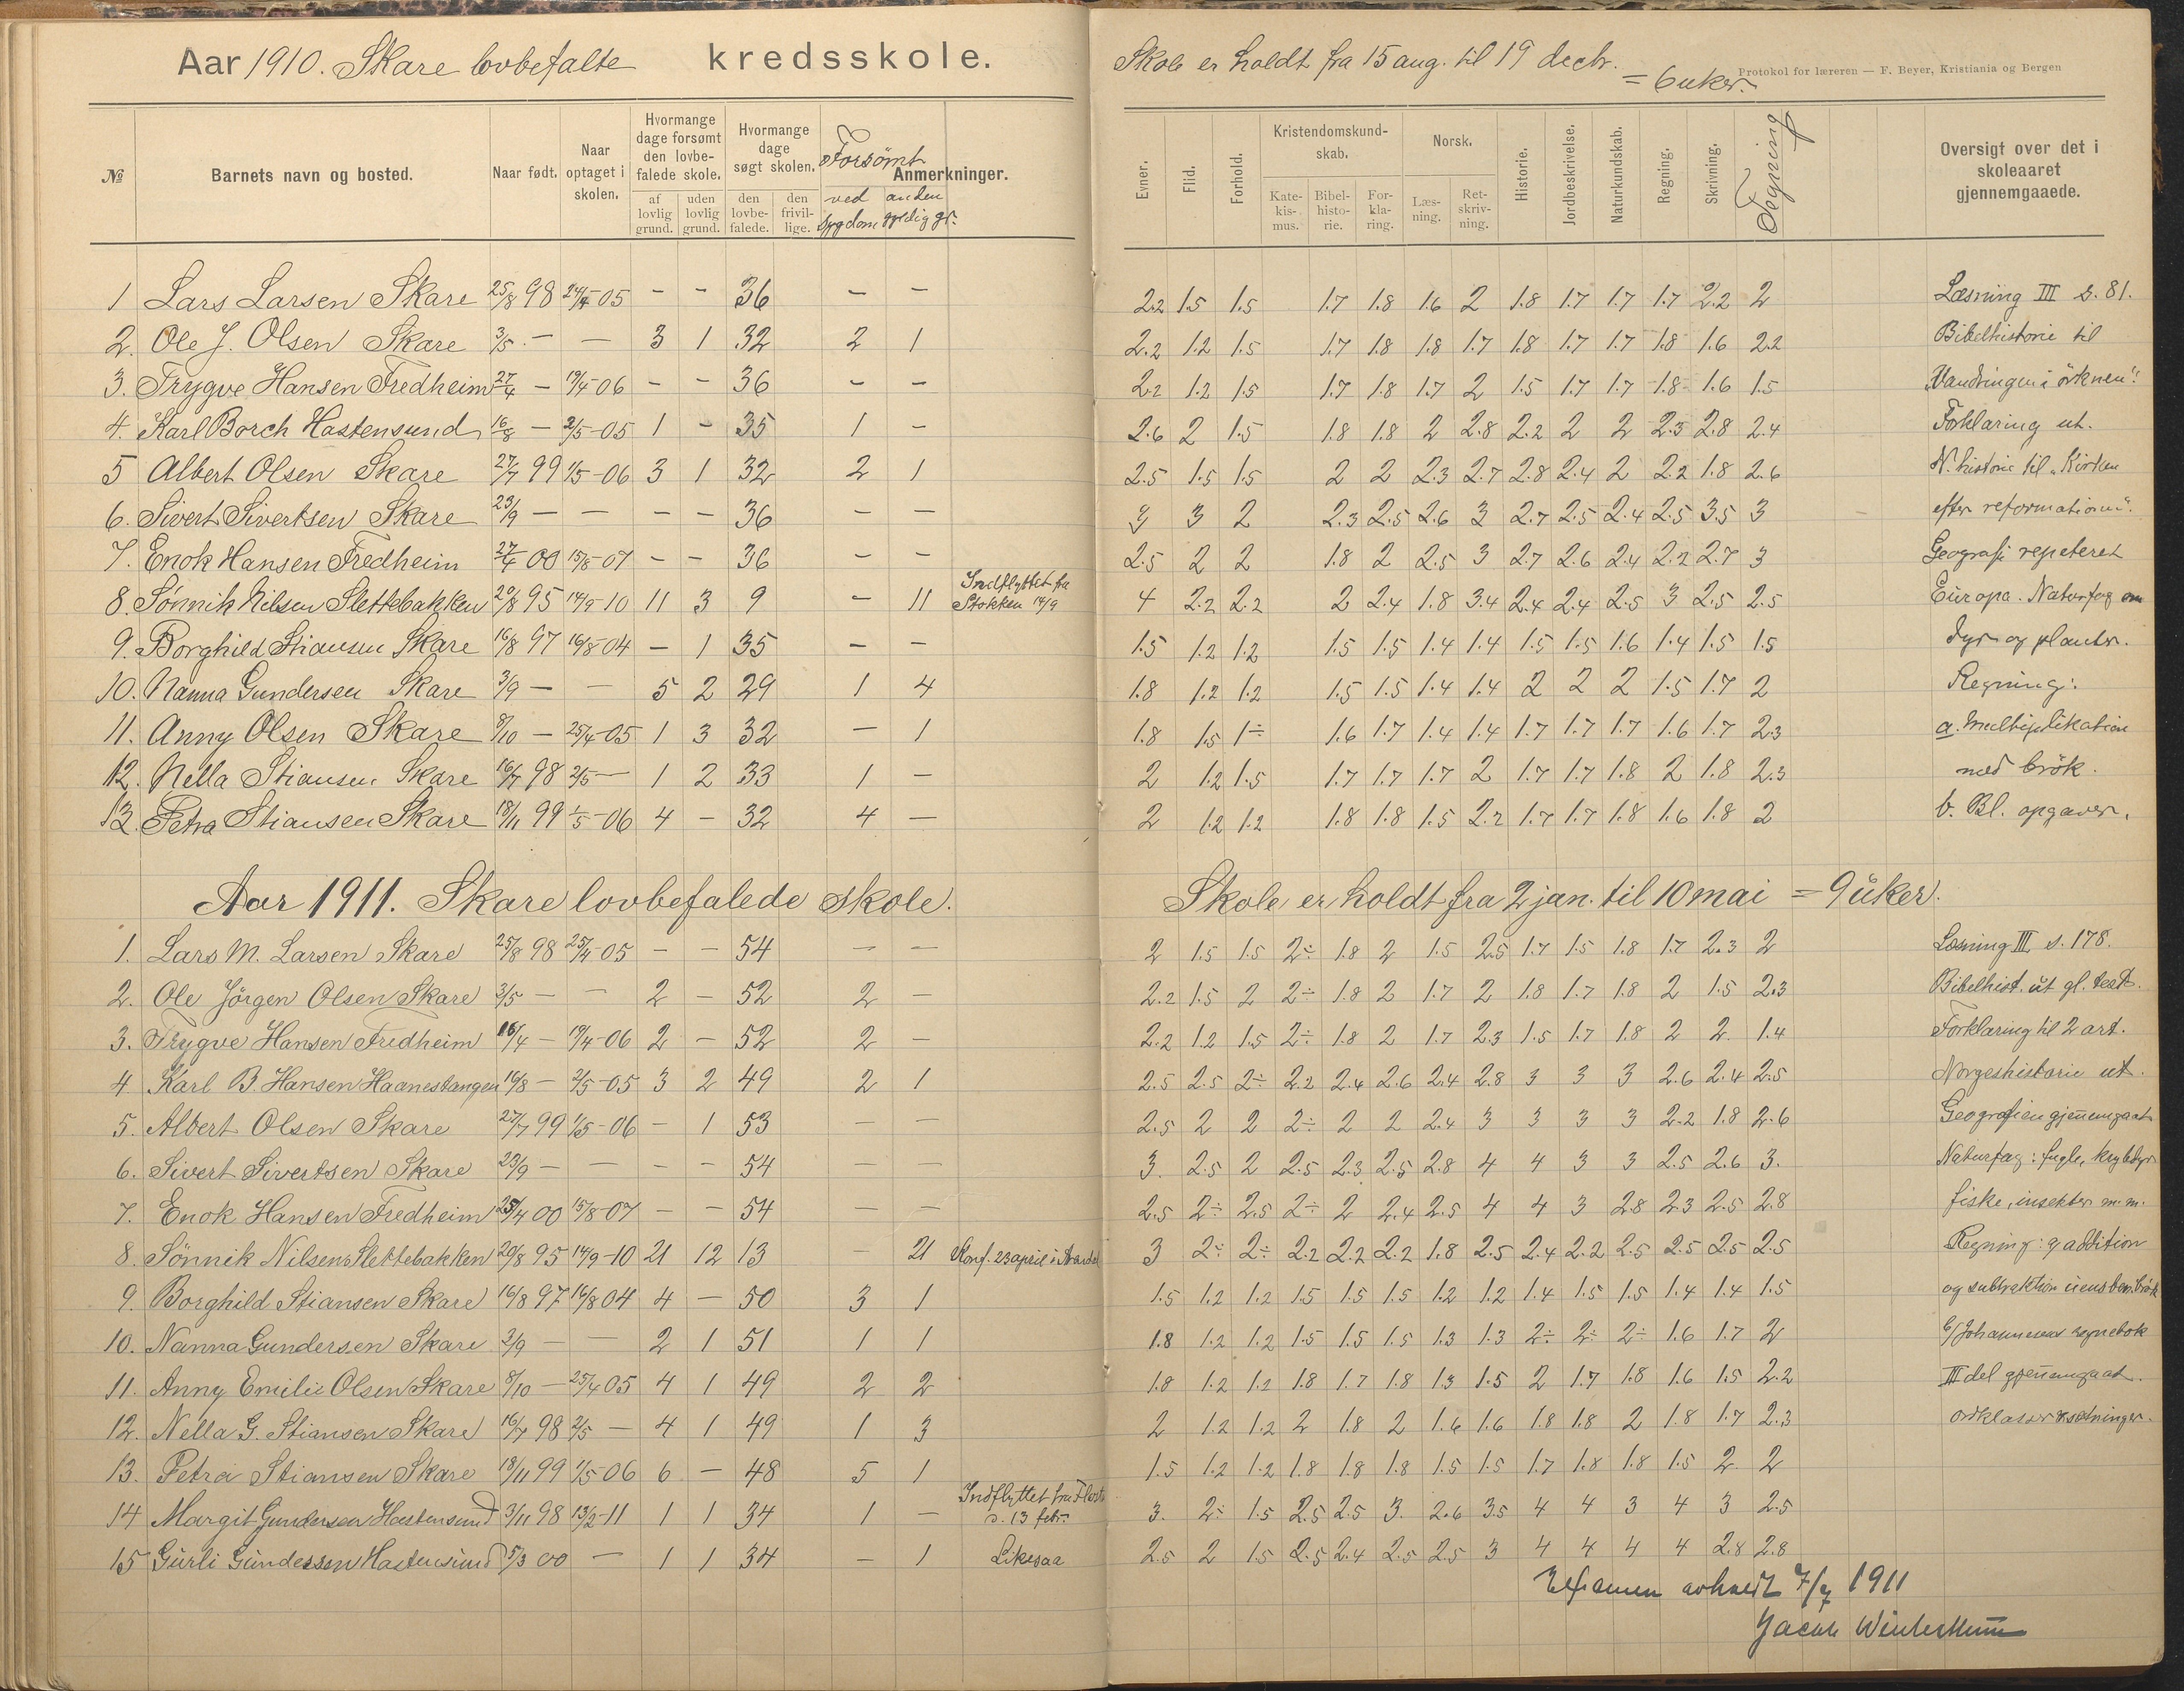 Aar 1910. Skare lovbefalte kredsskole.
Skole er holdt fra 15 aug. til 19 decbr. = 6 uker.
Protokol for læreren — F. Beyer, Kristiania og Bergen
№ Barnets navn og bosted. Naar født. Naar optaget i skolen. Hvormange dage forsømt den lovbefalede skole. af lovlig grund. uden lovlig grund. Hvormange dage søgt skolen. den lovbefalede. den frivillige. Forsømt ved sygdom anden gyldig gr. Anmerkninger.
Evner. Flid. Forhold. Kristendomskundskab. Katekismus. Bibelhistorie. Forklaring. Norsk. Læsning. Retskrivning. Historie. Jordbeskrivelse. Naturkundskab. Regning. Skrivning. Tegning Oversigt over det i skoleaaret gjennemgaaede.
1 Lars Larsen Skare 25/8 98 24/4 05 - - 36 - - 2.2 1.5 1.5 1.7 1.8 1.6 2 1.8 1.7 1.7 1.7 2.2 2 Læsning III s. 81.
2. Ole J. Olsen Skare 3/5 - - 3 1 32 2 1 2.2 1.2 1.5 1.7 1.8 1.8 1.7 1.8 1.7 1.7 1.8 1.6 2.2 Bibelhistorie til
3. Trygve Hansen Fredheim 27/4 - 19/4-06 - - 36 - - 2.2 1.2 1.5 1.7 1.8 1.7 2 1.5 1.7 1.7 1.8 1.6 1.5 "Vandringen i örknen".
4. Karl Borch Hastensund 16/8 - 2/5-05 1 - 35 1 - 2.6 2 1.5 1.8 1.8 2 2.8 2.2 2 2 2.3 2.8 2.4 Forklaring ut.
5 Albert Olsen Skare 27/7 99 1/5-06 3 1 32 2 1 2.5 1.5 1.5 2 2 2.3 2.7 2.8 2.4 2 2.2 1.8 2.6 N. historie til "Kirken
6. Sivert Sivertsen Skare 23/9 - - - - 36 - - 3 3 2 2.3 2.5 2.6 3 2.7 2.5 2.4 2.5 3.5 3 efter reformationen".
7. Enok Hansen Fredheim 27/4 00 15/8-07 - - 36 - - 2.5 2 2 1.8 2 2.5 3 2.7 2.6 2.4 2.2 2.7 3 Geografi repeteret
8. Sønnik Nilsen Slettebakken 20/8 95 14/9-10 11 3 9 - 11 Indflyttet fra Stokken 14/9 4 2.2 2.2 2 2.4 1.8 3.4 2.4 2.4 2.5 3 2.5 2.5 Europa. Naturfag om
9. Borghild Stiansen Skare 16/8 97 16/8 04 - 1 35 - - 1.5 1.2 1.2 1.5 1.5 1.4 1.4 1.5 1.5 1.6 1.4 1.5 1.5 dyr og planter.
10. Nanna Gundersen Skare 3/9 - - 5 2 29 1 4 1.8 1.2 1.2 1.5 1.5 1.4 1.4 2 2 2 1.5 1.7 2 Regning:
11. Anny Olsen Skare 8/10 - 25/4-05 1 3 32 - 1 1.8 1.5 1÷ 1.6 1.7 1.4 1.4 1.7 1.7 1.7 1.6 1.7 2.3 a. Multiplikation
12. Nella Stiansen Skare 16/7 98 2/5 - 1 2 33 1 - 2 1.2 1.5 1.7 1.7 1.7 2 1.7 1.7 1.8 2 1.8 2.3 med brök.
13. Petra Stiansen Skare 18/11 99 1/5-06 4 - 32 4 - 2 1.2 1.2 1.8 1.8 1.5 2.2 1.7 1.7 1.8 1.6 1.8 2 b. Bl. opgaver.
Aar 1911. Skare lovbefalede skole. Skole er holdt fra 2 jan. til 10 mai = 9 uker.
1. Lars M. Larsen Skare 25/8 98 25/4-05 - - 54 - - 2 1.5 1.5 2÷ 1.8 2 1.5 2.5 1.7 1.5 1.8 1.7 2.3 2 Læsning III s. 178.
2. Ole Jörgen Olsen Skare 3/5 - - 2 - 52 2 - 2.2 1.5 2 2÷ 1.8 2 1.7 2 1.8 1.7 1.8 2 1.5 2.3 Bibelhist. ut gl. test.
3. Trygve Hansen Fredheim 16/4 - 19/4-06 2 - 52 2 - 2.2 1.2 1.5 2÷ 1.8 2 1.7 2.3 1.5 1.7 1.8 2 2 1.4 Forklaring til 2 art.
4 Karl B. Hansen Haanestangen 16/8 - 2/5-05 3 2 49 2 1 2.5 2.5 2÷ 2.2 2.4 2.6 2.4 2.8 3 3 3 2.6 2.4 2.5 Norgeshistorie ut.
5. Albert Olsen Skare 27/7 99 1/5-06 - 1 53 - - 2.5 2 2 2÷ 2 2 2.4 3 3 3 3 2.2 1.8 2.6 Geografien gjennemgaat
6. Sivert Sivertsen Skare 23/9 - - - - 54 - - 3. 2.5 2 2.5 2.3 2.5 2.8 4 4 3 3 2.5 2.6 3. Naturfag: fugle, krybdyr
7. Enok Hansen Fredheim 25/4 00 15/8-07 - - 54 - - 2.5 2÷ 2.5 2÷ 2 2.4 2.5 4 4 3 2.8 2.3 2.5 2.8 fiske, insekter m.m.
8. Sönnik Nilsen Slettebakken 20/8 95 14/9-10 21 12 13 - 21 Konf. 23 april i Arendal 3 2÷ 2÷ 2.2 2.2 2.2 1.8 2.5 2.4 2.2 2.5 2.5 2.5 2.5 Regning: addition
9. Borghild Stiansen Skare 16/8 97 16/8 04 4 - 50 3 1 1.5 1.2 1.2 1.5 1.5 1.5 1.2 1.2 1.4 1.5 1.5 1.4 1.4 1.5 og subtraktion brök
10. Nanna Gundersen Skare 3/9 - - 2 1 51 1 1 1.8 1.2 1.2 1.5 1.5 1.5 1.3 1.3 2÷ 2÷ 2÷ 1.6 1.7 2 Johannesens regnebok
11. Anny Emilie Olsen Skare 8/10 - 25/4 05 4 1 49 2 2 1.8 1.2 1.2 1.8 1.7 1.8 1.3 1.5 2 1.7 1.8 1.6 1.5 2.2 III del gjennemgaat.
12. Nella G. Stiansen Skare 16/7 98 2/5 - 4 1 49 1 3 2 1.2 1.2 2 1.8 2 1.6 1.6 1.8 1.8 2 1.8 1.7 2.3 ordklasser setninger.
13. Petra Stiansen Skare 18/11 99 1/5 06 6 - 48 5 1 1.5 1.2 1.2 1.8 1.8 1.8 1.5 1.5 1.7 1.8 1.8 1.5 2 2
14 Margit Gundersen Hastensund 3/11 98 13/2-11 1 1 34 1 - Indflyttet fra d. 13 febr. 3. 2÷ 1.5 2.5 2.5 3. 2.6 3.5 4 4 3 4 3 2.5
15 Gurli Gundersen Hastensund 5/3 00 - 1 1 34 - 1 Likesaa 2.5 2 1.5 2.5 2.4 2.5 2.5 3 4 4 4 4 2.8 2.8
Examen avholdt 7/7 1911
Jacob